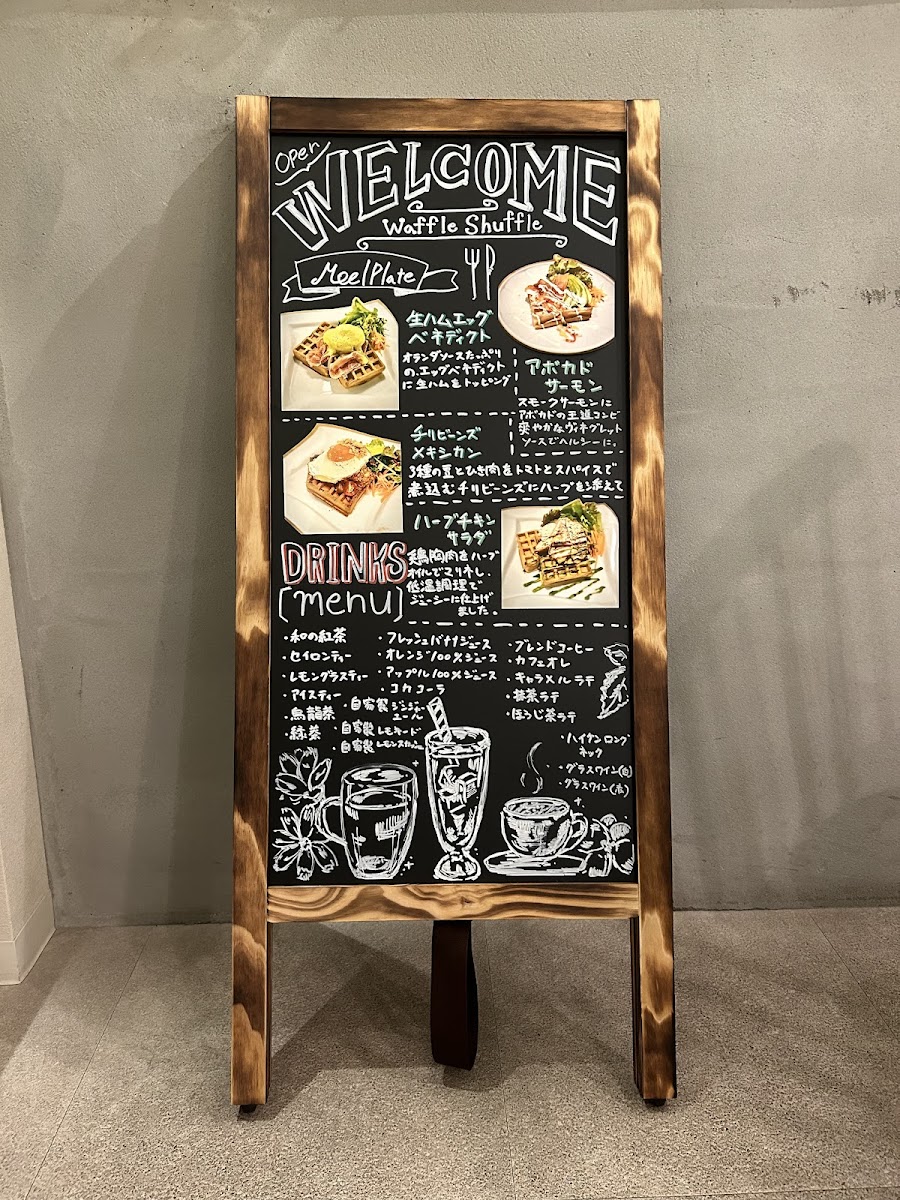 Open
WELCOME
Waffle Shuffle
MeelPlate
生ハムエッグ
ベネディクト
オランダソースたっぷり
の、エッグベネディクト
に生ハムをトッピング
アボカド
サーモン
スモークサーモンに
アボカドの王道コンビ
爽やかなヴィネグレット
ソースでヘルシーに。
チリビーンズ
メキシカン
3種の豆とひき肉をトマトとスパイスで
煮込むチリビーンズにハーブを添えて
ハーブチキン
サラダ
鶏胸肉をハーブ
オイルでマリネし、
低温調理で
ジューシーに仕上げ
ました。
DRINKS
[menu]
・和の紅茶
・セイロンティー
・レモングラスティー
・アイスティー
・烏龍茶
・緑茶
・フレッシュバナナジュース
・オレンジ100%ジュース
・アップル100%ジュース
・コカコーラ
・自家製ジンジャー
エール
・自家製レモネード
・自家製レモンスカッシュ
・ブレンドコーヒー
・カフェオレ
・キャラメルラテ
・抹茶ラテ
・ほうじ茶ラテ
・ハイネケンロング
ネック
・グラスワイン(白)
・グラスワイン(赤)